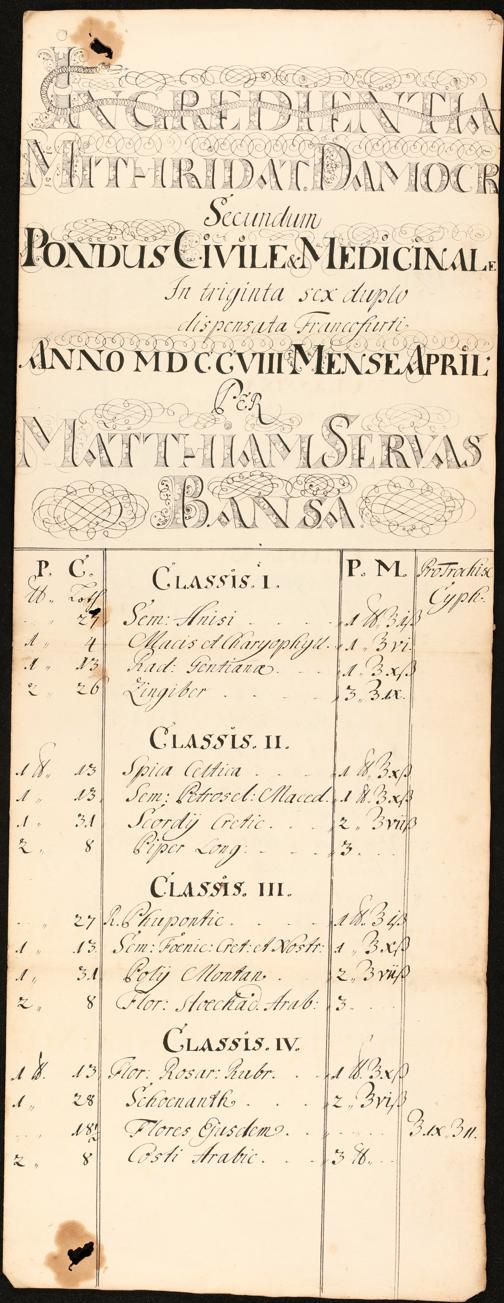 INGREDIENTIA
MITHRIDAT. DAMOCR
Secundum
PONDUS CIVILE & MEDICINALE
In triginta sex duplo
dispensata Francofurti
ANNO MDCCVIII MENSE APRIL
PER
MATTHIAM SERVAS
BANSA.
P. C. CLASSIS. I. P. M. Pro Trochisc
℔. Loth Cyph.
27 Sem: Anisi 1 ℔. ℥ijß
1 „ 4 Macis et Charyophyll. 1 „ ℥vi.
1 „ 13 Rad: Gentianæ 1 „ ℥xß
2 „ 26 Zingiber 3 „ ℥ix.
CLASSIS. II.
1 ℔. 13 Spica Celtica 1 ℔. ℥xß
1 „ 13 Sem: Petrosel: Maced. 1 ℔. ℥xß
1 „ 31 Scordij Cretic. 2 „ ℥viiß
2 „ 8 Piper Long: 3
CLASSIS. III.
27 R. Rhupontic. 1 ℔. ℥ijß
1 „ 13 Sem: Fœnic: Cret: et Nostr: 1 „ ℥xß
1 „ 31 Polij Montan 2 „ ℥viiß
2 „ 8 Flor: Stoechad. Arab: 3
CLASSIS. IV.
1 ℔. 13 Flor: Rosar: Rubr. 1 ℔. ℥xß
1 „ 28 Schoenanth. 2 „ ℥viß
18½ Flores Ejusdem. ℥ix. ℥ii.
2 „ 8 Costi Arabic. 3 ℔.